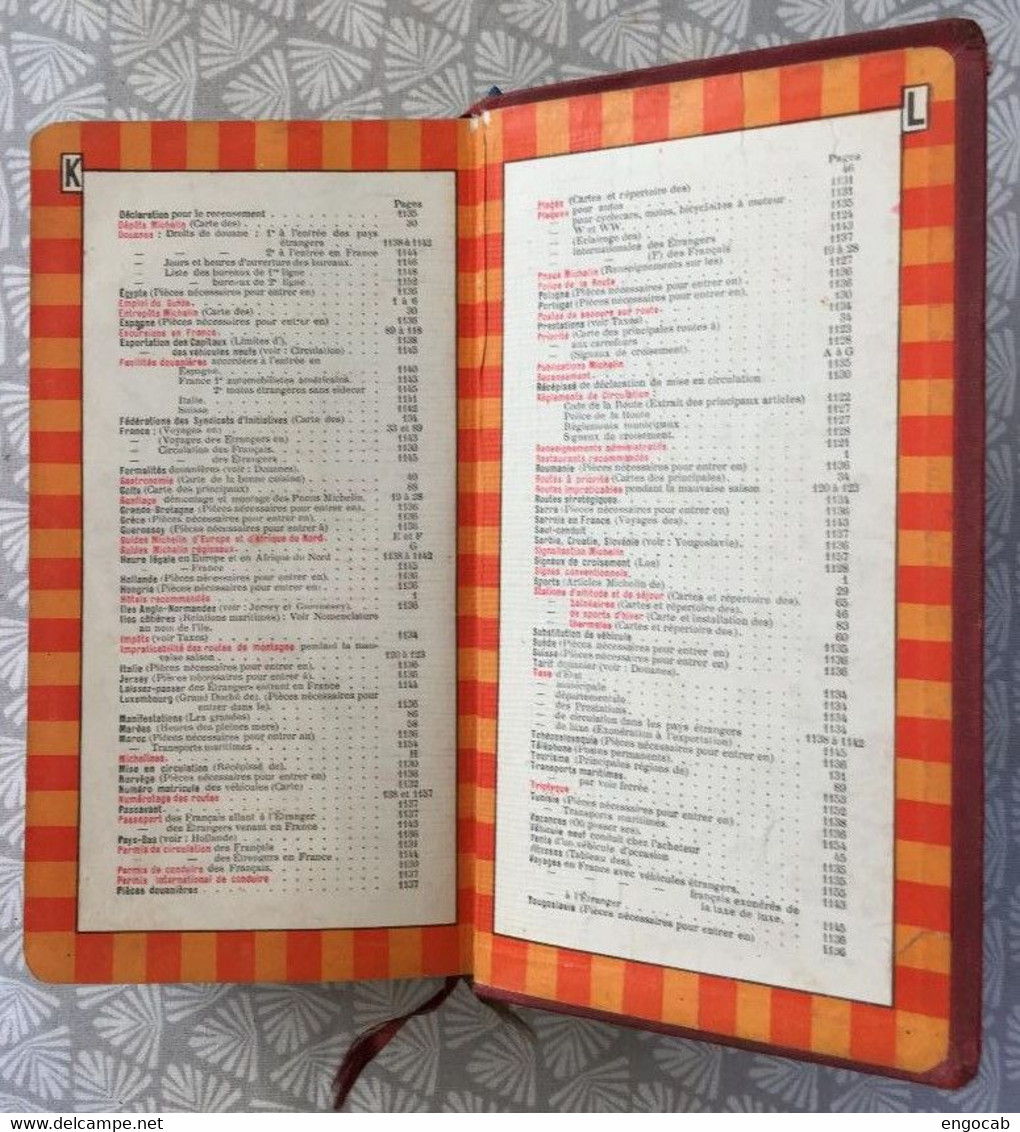 K
Pages
Déclaration pour le recensement 1135
Dépôts Michelin (Carte des) 30
Douanes : Droits de douane : 1° à l'entrée des pays
étrangers 1138 à 1142
— — 2° à l'entrée en France 1144
— Jours et heures d'ouverture des bureaux. 1146
— Liste des bureaux de 1re ligne 1148
— — bureaux de 2e ligne 1152
Égypte (Pièces nécessaires pour entrer en) 1136
Emploi du Guide. 1 à 6
Entrepôts Michelin (Carte des) 30
Espagne (Pièces nécessaires pour entrer en) 1136
Excursions en France. 89 à 118
Exportation des Capitaux (Limites d'). 1138
— des véhicules neufs (voir : Circulation) 1145
Facilités douanières accordées à l'entrée en
Espagne. 1140
France 1° automobilistes américains. 1143
2° motos étrangères sans sidecar 1145
Italie. 1141
Suisse 1142
Fédérations des Syndicats d'Initiatives (Carte des) 134
France : (Voyages en) 33 et 89
— (Voyages des Étrangers en) 1143
— Circulation des Français. 1130
— — des Étrangers 1145
Formalités douanières (voir : Douanes).
Gastronomie (Carte de la bonne cuisine) 40
Golfs (Carte des principaux) 88
Gonflage démontage et montage des Pneus Michelin. 19 à 28
Grande-Bretagne (Pièces nécessaires pour entrer en). 1136
Grèce (Pièces nécessaires pour entrer en) 1136
Guernesey (Pièces nécessaires pour entrer à) 1136
Guides Michelin d'Europe et d'Afrique du Nord. E et F
Guides Michelin régionaux. G
Heure légale en Europe et en Afrique du Nord 1138 à 1142
— France 1145
Hollande (Pièces nécessaires pour entrer en). 1136
Hongrie (Pièces nécessaires pour entrer en) 1136
Hôtels recommandés 1
Iles Anglo-Normandes (voir : Jersey et Guernesey). 1136
Iles côtières (Relations maritimes) : Voir Nomenclature
au nom de l'île.
Impôts (voir Taxes) 1134
Impraticabilité des routes de montagne pendant la mau-
vaise saison 120 à 123
Italie (Pièces nécessaires pour entrer en) 1136
Jersey (Pièces nécessaires pour entrer à). 1136
Laissez-passer des Étrangers entrant en France 1144
Luxembourg (Grand Duché de). (Pièces nécessaires pour
entrer dans le). 1136
Manifestations (Les grandes) 86
Marées (Heures des pleines mers) 58
Maroc (Pièces nécessaires pour entrer au) 1136
— Transports maritimes 1154
Michelines. H
Mise en circulation (Récépissé de). 1130
Norvège (Pièces nécessaires pour entrer en) 1136
Numéro matricule des véhicules (Carte) 1132
Numérotage des routes 138 et 1157
Passavant. 1137
Passeport des Français allant à l'Étranger 1137
— des Étrangers venant en France 1143
Pays-Bas (voir : Hollande) 1136
Permis de circulation des Français 1131
— — des Étrangers en France 1144
Permis de conduire des Français. 1130
Permis international de conduire 1137
Pièces douanières 1137
L
Pages
Plages (Cartes et répertoire des) 46
Plaques pour autos 1131
— pour cyclecars, motos, bicyclettes à moteur 1133
— W et WW. 1135
— (Eclairage des) 1124
— internationales des Étrangers 1143
— — (F) des Français 1137
Pneus Michelin (Renseignements sur les) 19 à 28
Police de la Route 1127
Pologne (Pièces nécessaires pour entrer en) 1136
Portugal (Pièces nécessaires pour entrer en). 1136
Postes de secours sur route 130
Prestations (voir Taxes) 1134
Priorité (Carte des principales routes à) 34
— aux carrefours 1123
— (Signaux de croisement). 1128
Publications Michelin A à G
Recensement. 1135
Récépissé de déclaration de mise en circulation 1130
Règlements de Circulation :
Code de la Route (Extrait des principaux articles) 1122
Police de la Route 1127
Règlements municipaux 1127
Signaux de croisement. 1128
Renseignements administratifs 1121
Restaurants recommandés 1
Roumanie (Pièces nécessaires pour entrer en) 1136
Routes à priorité (Cartes des principales). 34
Routes impraticables pendant la mauvaise saison 120 à 123
Routes stratégiques. 1134
Sarre (Pièces nécessaires pour entrer en) 1136
Sarrois en France (Voyages des). 1143
Sauf-conduit 1137
Serbie, Croatie, Slovénie (voir : Yougoslavie). 1136
Signalisation Michelin 1157
Signaux de croisement (Les) 1128
Signes conventionnels.
Sports (Articles Michelin de) 1
Stations d'altitude et de séjour (Cartes et répertoire des). 29
— balnéaires (Cartes et répertoire des). 65
— de sports d'hiver (Carte et installation des) 46
— thermales (Cartes et répertoire des). 83
Substitution de véhicule 60
Suède (Pièces nécessaires pour entrer en) 1135
Suisse (Pièces nécessaires pour entrer en) 1136
Tarif douanier (voir : Douanes). 1136
Taxe d'État
— municipale 1134
— départementale 1134
— des Prestations. 1134
— de circulation dans les pays étrangers 1138 à 1142
— de luxe (Exonération à l'exportation) 1145
Tchécoslovaquie (Pièces nécessaires pour entrer en) 1136
Téléphone (Postes permanents). 131
Tourisme (Principales régions de) 89
Transports maritimes. 1153
— par voie ferrée 1152
Triptyque 1138
Tunisie (Pièces nécessaires pour entrer en) 1136
— Transports maritimes. 1154
Vacances (Où passer ses). 45
Véhicule neuf conduit chez l'acheteur 1135
Vente d'un véhicule d'occasion 1135
Vitesses (Tableau des). 1155
Voyages en France avec véhicules étrangers. 1143
— — — français exonérés de
la taxe de luxe. 1145
— à l'Étranger 1136
Yougoslavie (Pièces nécessaires pour entrer en) 1136
www.delcampe.net
engocab